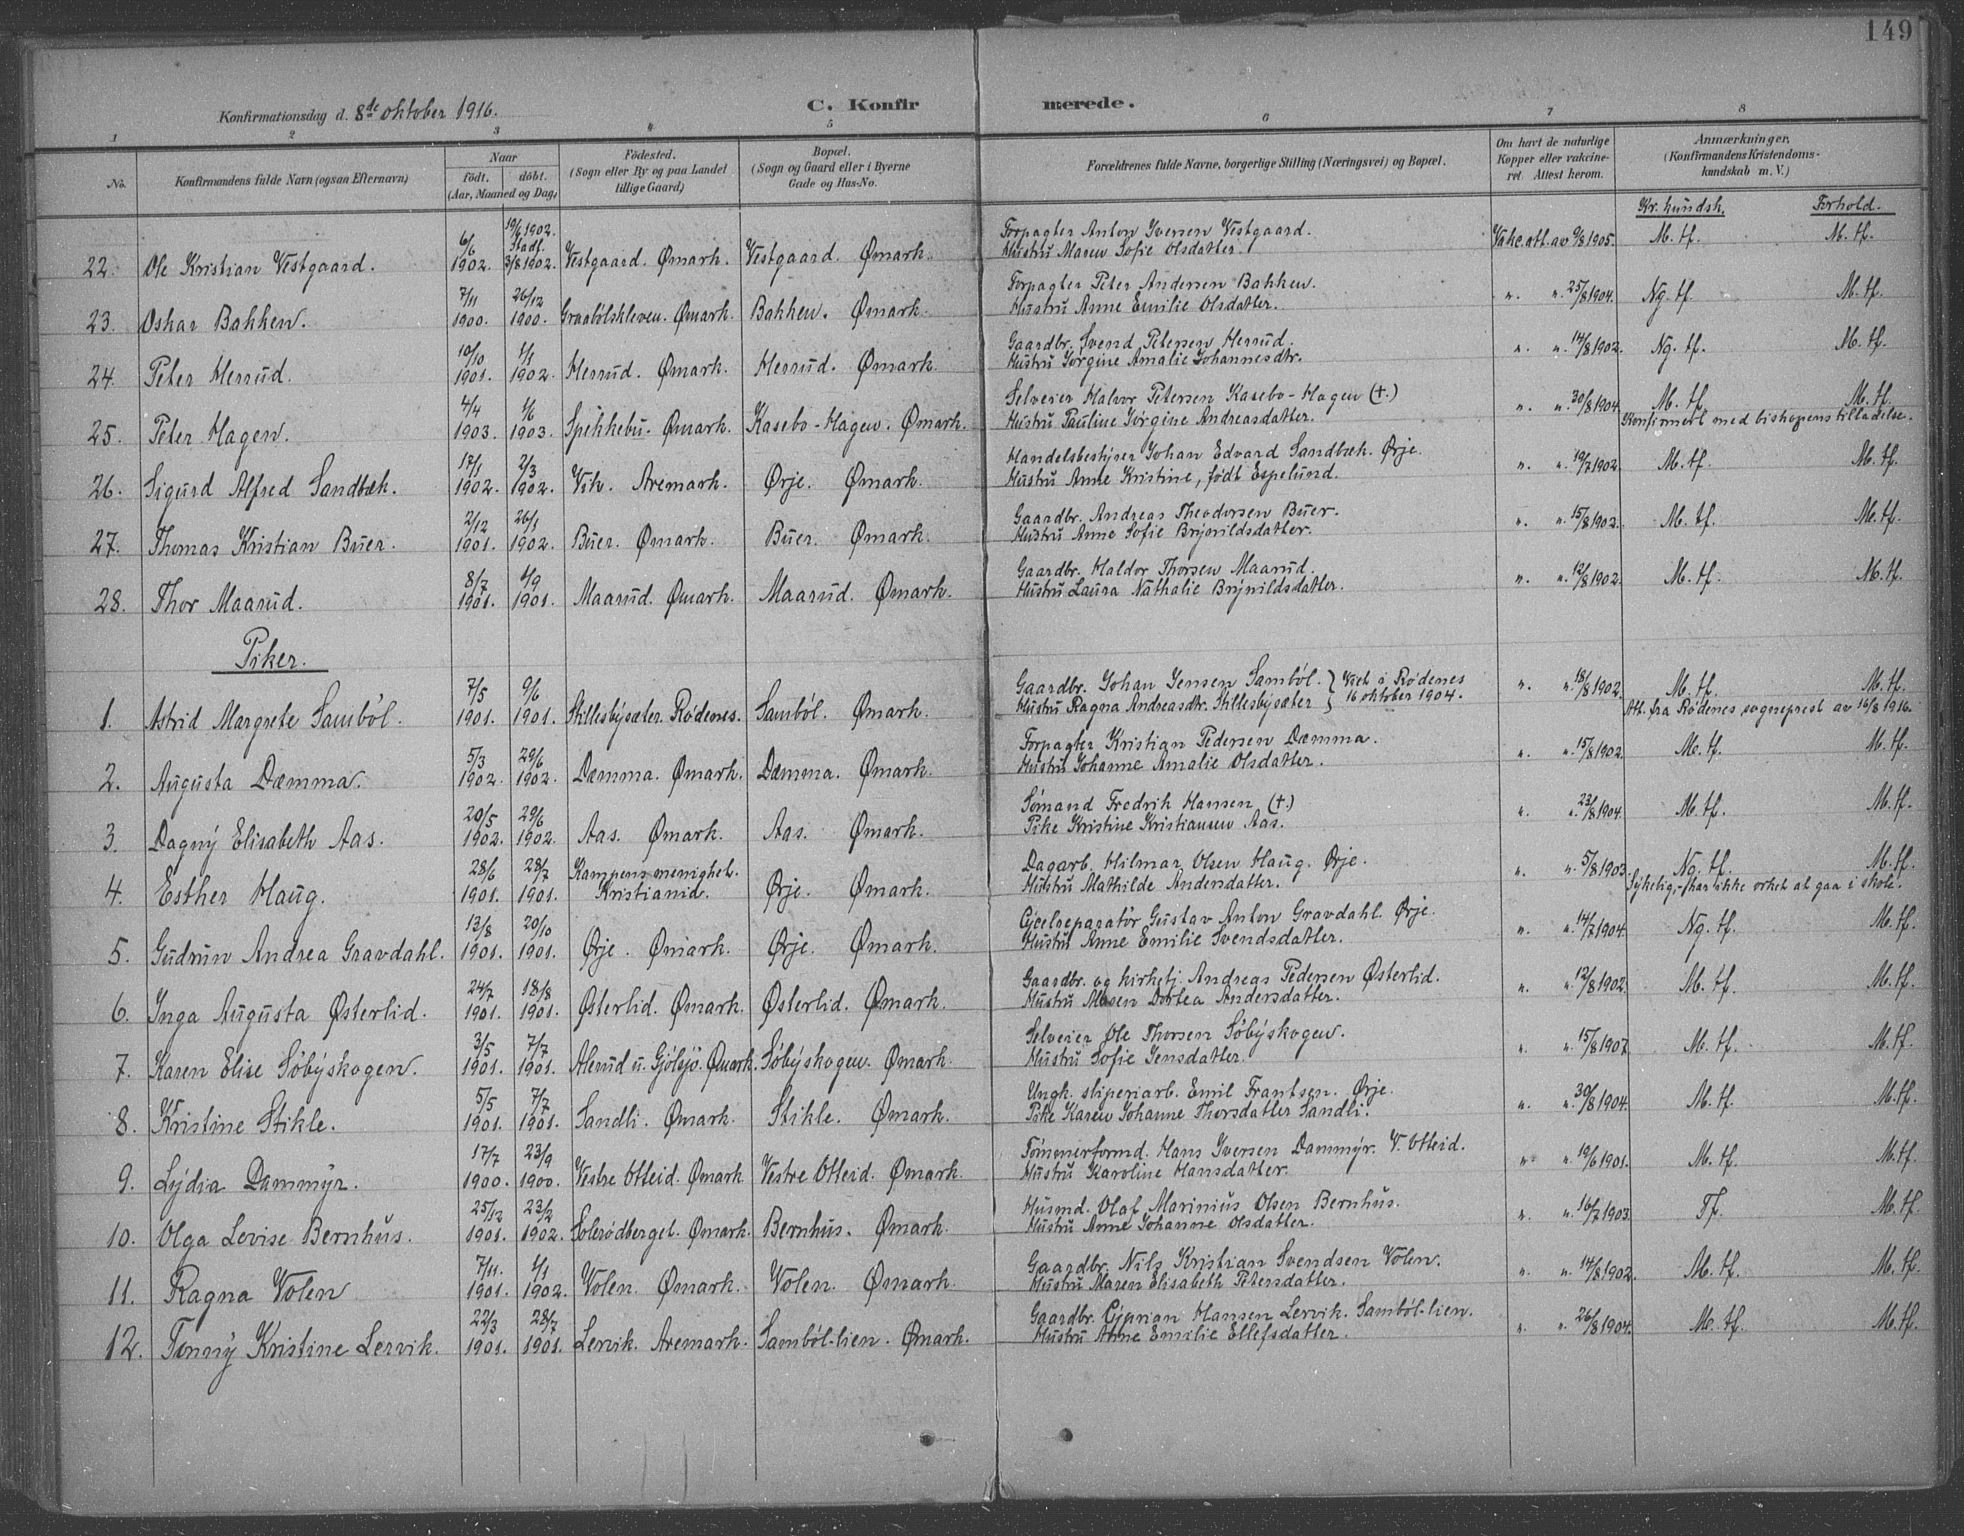 149
Konfirmationsdag d. 8de oktober 1916. C. Konfirmerede.
1 2 3 4 5 6 7 8
No. Konfirmandens fulde Navn (ogsaa Efternavn) Naar Født. døbt. (Aar, Maaned og Dag) Fødested. (Sogn eller By og paa Landet tillige Gaard) Bopæl. (Sogn og Gaard eller i Byerne Gade og Hus-No. Forældrenes fulde Navne, borgerlige Stilling (Næringsvei) og Bopæl. Om havt de naturlige Kopper eller vakcineret. Attest herom. Anmærkninger, (Konfirmandens Kristendomskundskab m. V.)
Kr. kundsk. Forhold.
22. Ole Kristian Vestgaard. 6/6 1902. 19/6 1902. Stadf. 3/8 1902. Vestgaard. Ømark. Vestgaard. Ømark. Forpagter Anton Iversen Vestgaard. Vakc. att. av 9/8 1905. M. tf. M. tf.
Hustru Maren Sofie Olsdatter.
23. Oskar Bakken. 7/11 1900. 26/12 1900. Graabølskleven. Ømark. Bakken. Ømark. Forpagter Peter Andersen Bakken. " " 25/8 1904. Ng. tf. M. tf.
Hustru Anne Emilie Olsdatter.
24. Peter Herrud. 10/10 1901. 1/1 1902. Herrud. Ømark. Herrud. Ømark. Gaardbr. Svend Petersen Herrud. " " 14/8 1902. Ng. tf. M. tf.
Hustru Jørgine Amalie Johannesdtr.
25. Peter Hagen. 4/4 1903. 1/6 1903. Spekkebu. Ømark. Kasebo-Hagen. Ømark. Selveier Halvor Petersen Kasebo-Hagen (†.) " " 30/8 1904. M. tf. M. tf.
Hustru Pauline Jørgine Andreasdatter. Konfirmert med bishopens tilladelse.
26. Sigurd Alfred Sandbæk. 17/1 1902. 2/3 1902. Vik. Aremark. Ørje. Ømark. Handelsbestyrer Johan Edvard Sandbæk. Ørje. " " 19/7 1902. M. tf. M. tf.
Hustru Anne Kristine, født Espelund.
27. Thomas Kristian Buer. 2/12 1901. 26/1 1902. Buer. Ømark. Buer. Ømark. Gaardbr. Andreas Theodorsen Buer. " " 15/8 1902. M. tf. M. tf.
Hustru Anne Sofie Brynildsdatter.
28. Thor Maarud. 8/7 1901. 1/9 1901. Maarud. Ømark. Maarud. Ømark. Gaardbr. Haldor Thorsen Maarud. " " 12/8 1902. M. tf. M. tf.
Hustru Laura Nathalie Brynildsdatter.
Piker.
1. Astrid Margrete Sambøl. 7/5 1901. 9/6 1901. Stillesbysæter. Rødenes. Sambøl. Ømark. Gaardbr. Johan Jensen Sambøl. } Viet i Rødenes " " 18/8 1902. M. tf. M. tf.
Hustru Ragna Andreasdtr. Stillesbysæter } 16 oktober 1904. Att. fra Rødenes sogneprest av 16/8 1916.
2. Augusta Dæmma. 5/3 1902. 29/6 1902. Dæmma. Ømark. Dæmma. Ømark. Forpagter Kristian Pedersen Dæmma. " " 15/8 1902. M. tf. M. tf.
Hustru Johanne Amalie Olsdatter.
3. Dagny Elisabeth Aas. 20/5 1902. 29/6 1902. Aas. Ømark. Aas. Ømark. Sømand Fredrik Hansen (†.) " " 23/8 1904. M. tf. M. tf.
Pike Kristine Kristiansen Aas.
4. Esther Haug. 28/6 1901. 28/7 1901. Kampens menighet. Kristiania. Ørje. Ømark. Dagarb. Hilmar Olsen Haug. Ørje. " " 5/8 1903. Ng. tf. M. tf.
Hustru Mathilde Andersdatter. Sykelig, har ikke orket at gaa i skole.
5. Gudrun Andrea Gravdahl. 13/8 1901. 20/10 1901. Ørje. Ømark. Ørje. Ømark. Cycelreparatør Gustav Anton Gravdahl. Ørje. " " 14/7 1904. Ng. tf. M. tf.
Hustru Anne Emilie Svendsdatter.
6. Inga Augusta Østerlid. 24/7 1901. 18/8 1901. Østerlid. Ømark. Østerlid. Ømark. Gaardbr. og kirketj. Andreas Pedersen Østerlid. " " 12/8 1902. M. tf. M. tf.
Hustru Maren Dortea Andersdatter.
7. Karen Elise Søbyskogen. 3/5 1901. 7/7 1901. Alerud u. Gjølsjø. Ømark. Søbyskogen. Ømark. Selveier Ole Thorsen Søbyskogen. " " 15/8 1907. M. tf. M. tf.
Hustru Sofie Jensdatter.
8. Kristine Stikle. 5/5 1901. 7/7 1901. Sandli. Ømark. Stikle. Ømark. Ungk. sliperiarb. Emil Frantsen. Ørje. " " 30/8 1904. M. tf. M. tf.
Pike Karen Johanne Thorsdatter Sandli.
9. Lydia Dammyr. 17/7 1900. 23/9 1900. Vestre Otteid. Ømark Vestre Otteid. Ømark. Tømmerformd. Hans Iversen Dammyr. V. Otteid. " " 19/6 1901. M. tf. M. tf.
Hustru Karoline Hansdatter.
10. Olga Lovise Bernhus. 25/12 1901. 23/2 1902. Solerødberget. Ømark. Bernhus. Ømark. Husmd. Olaf Marinius Olsen Bernhus. " " 16/7 1903. Tf. M. tf.
Hustru Anne Johanne Olsdatter.
11. Ragna Volen 7/11. 1901. 1/1 1902. Volen. Ømark. Volen. Ømark. Gaardbr. Nils Kristian Svendsen Volen. " " 14/8 1902. M. tf. M. tf.
Hustru Maren Elisabeth Petersdatter.
12. Tonny Kristine Lervik. 22/3 1901. 28/7 1901. Lervik. Aremark. Sambøl-lien. Ømark. Gaardbr. Cyprian Hansen Lervik. Sambøl-lien. " " 26/8 1904. M. tf. M. tf.
Hustru Anne Emilie Ellefsdatter.